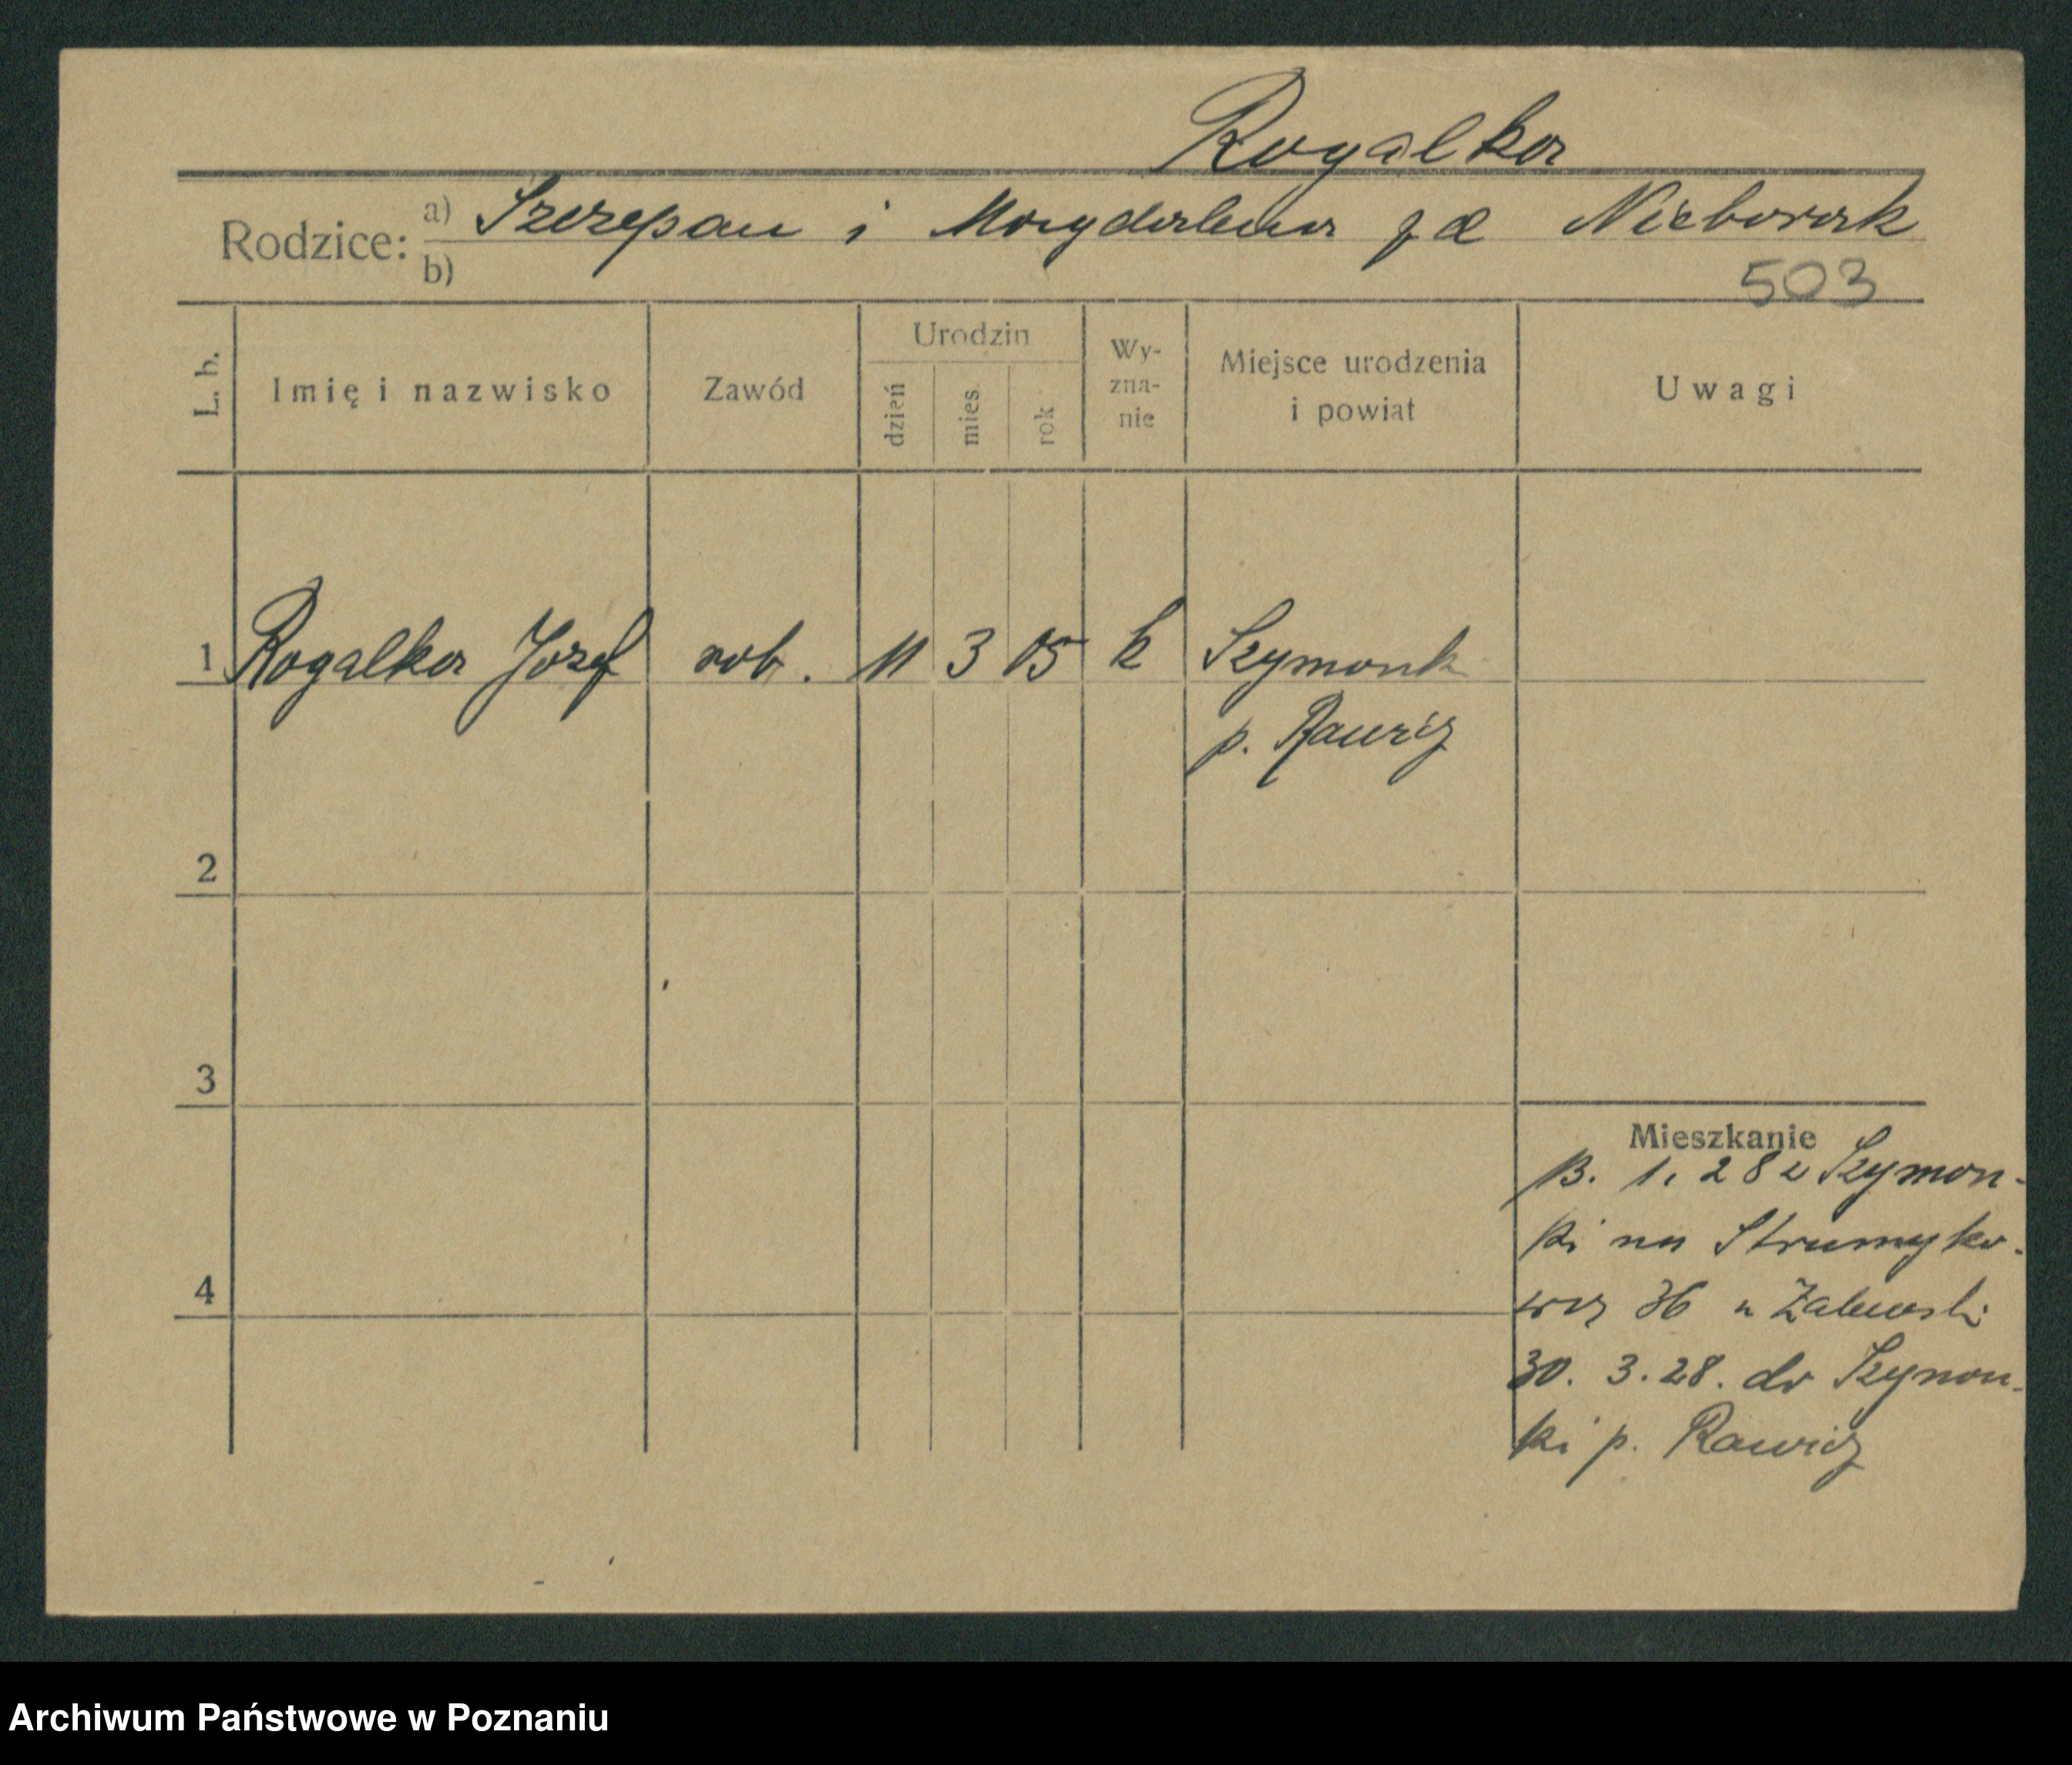 Rogalka
Rodzice: a) Szczepan i Magdalena zd Nieborak
b)
503
L. b. Imię i nazwisko Zawód Urodzin dzień mies. rok Wy-zna-nie Miejsce urodzenia i powiat Uwagi
1 Rogalka Jozef rob. 11 3 05 k Szymonk
p. Rawicz
2
3
Mieszkanie
13. 1. 28 z Szymon-
ki na Strumyko-
wa 36 u Zalewski
4
30. 3. 28. do Szymon-
ki p. Rawicz
Archiwum Państwowe w Poznaniu